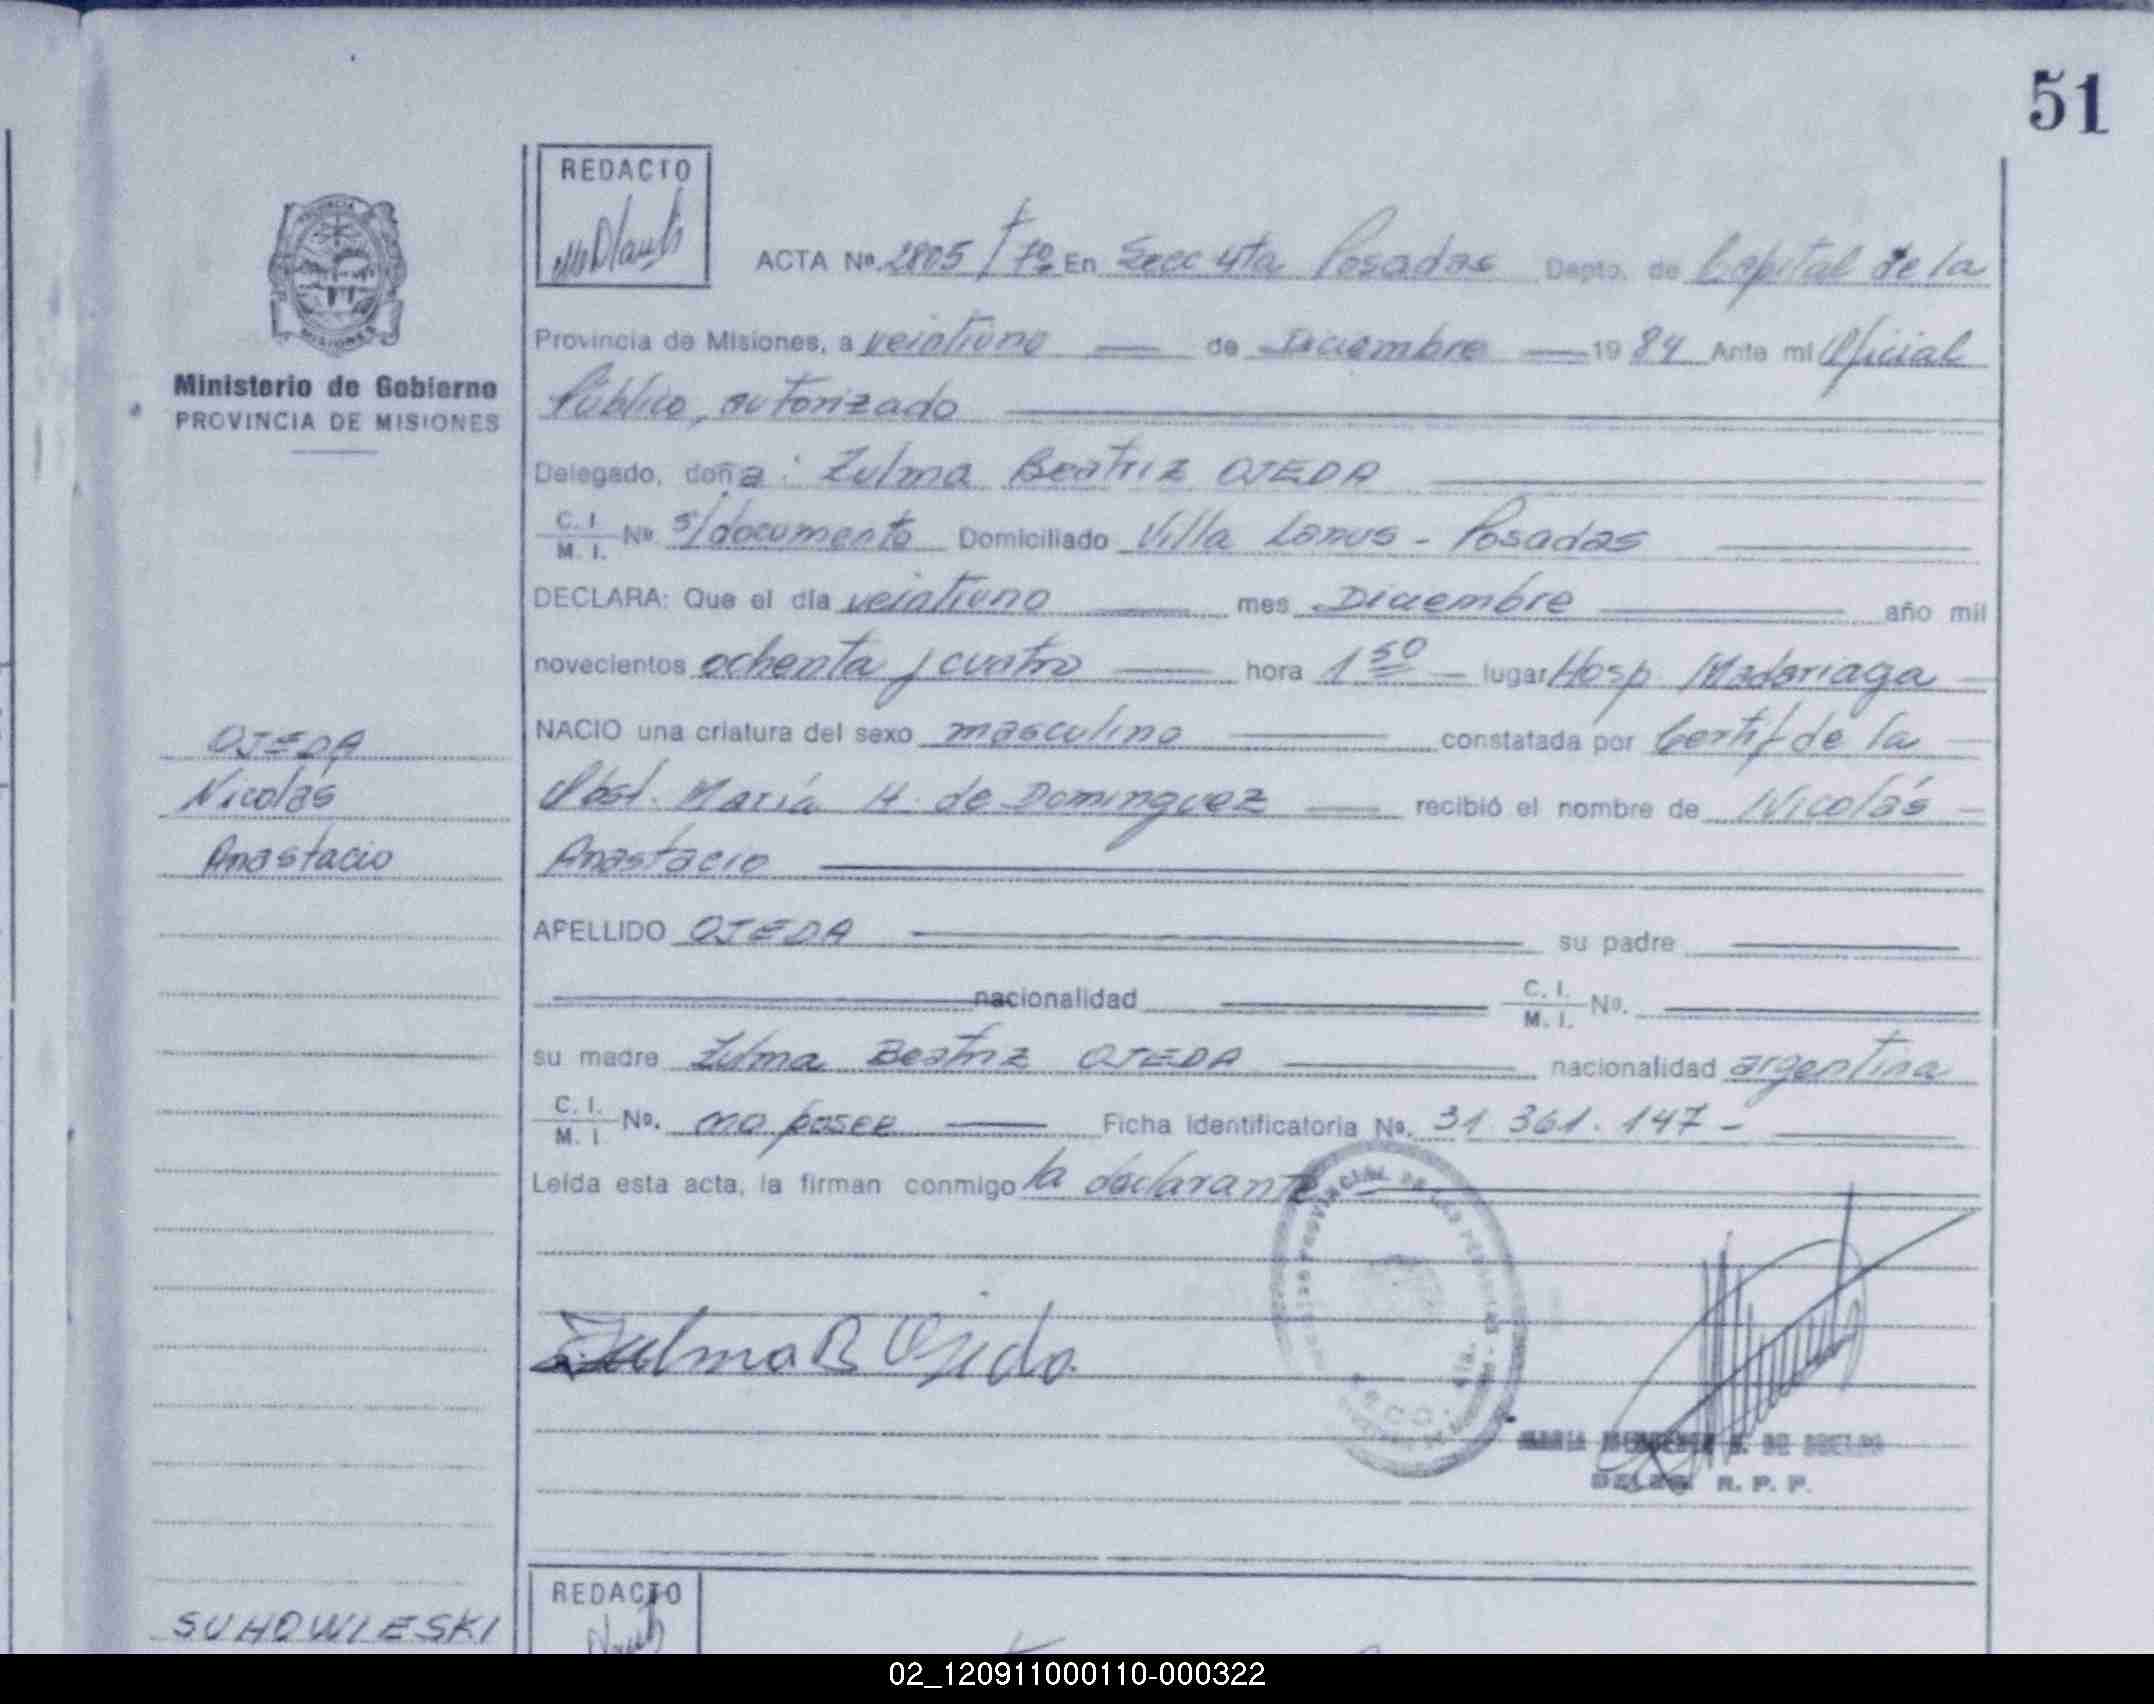 51
REDACTO
ACTA Nº 2805 / Tº 7º En Secc 4ta Posadas Depto. de Capital de la
Provincia de Misiones, a veintiuno de Diciembre 1984 Ante mi Oficial
Público, autorizado
Ministerio de Gobierno
PROVINCIA DE MISIONES
Delegado, doña: Zulma Beatriz OJEDA
C. I. M. I. Nº s/documento Domiciliado Villa Lanus - Posadas
DECLARA: Que el día veintiuno mes Diciembre año mil
novecientos ochenta y cuatro hora 1 50 lugar Hosp Madariaga
NACIO una criatura del sexo masculino constatada por Certif de la
Obst. María H. de Dominguez recibió el nombre de Nicolás
Anastacio
OJEDA
Nicolás
Anastacio
APELLIDO OJEDA su padre
nacionalidad C. I. M. I. Nº.
su madre Zulma Beatriz OJEDA nacionalidad argentina
C. I. M. I. Nº. no posee Ficha Identificatoria Nº. 31 361. 147 -
Leída esta acta, la firman conmigo la declarante
Zulma B Ojeda
PROVINCIAL DE LAS PERSONAS
4ta.
MARIA DE
DELEG. R. P. P.
REDACTO
SUHOWIESKI
02_120911000110-000322